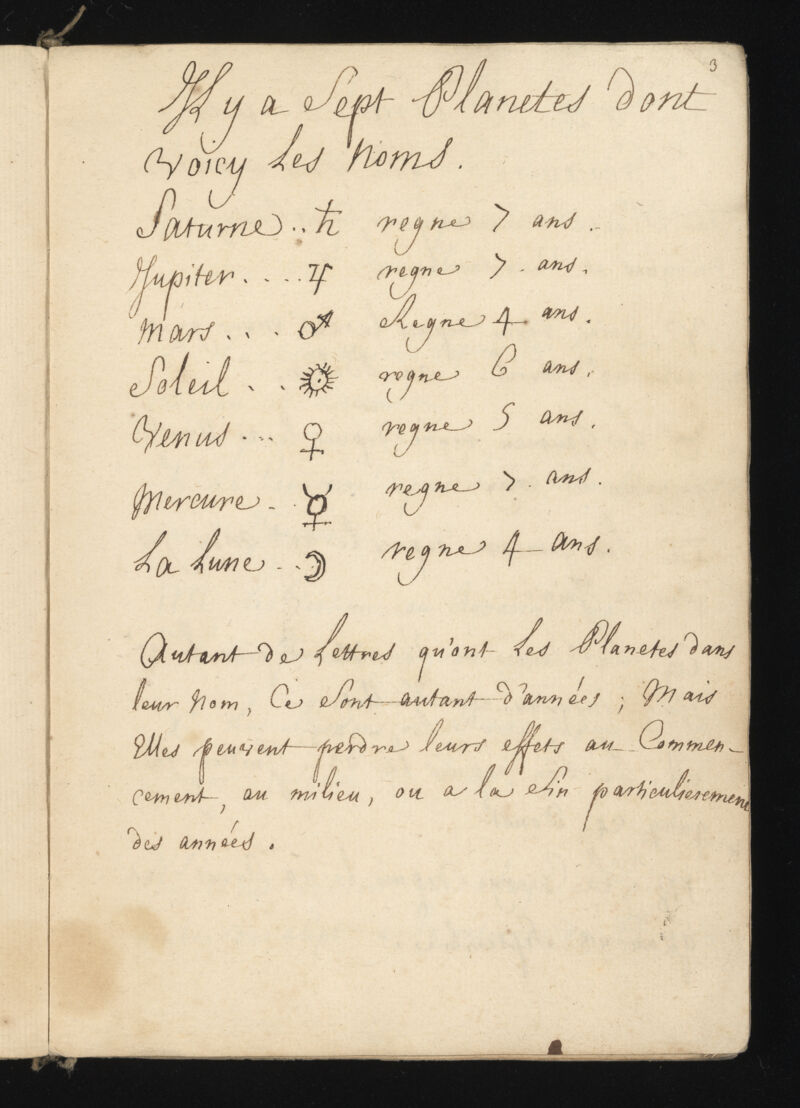 3
Il y a Sept Planetes dont
voicy Les Noms.
Saturne .. ♄ regne 7 ans.
Jupiter .... ♃ regne 7. ans.
Mars . . . ♂ Regne 4 ans.
Soleil . . ☉ regne 6 ans.
Venus ... ♀ regne 5 ans.
Mercure . ☿ regne 7. ans.
La Lune .. ☽ regne 4 ans.
Autant de Lettres qu'ont Les Planetes dans
leur Nom, Ce sont autant d'années; Mais
Elles peuvent perdre leurs effets au Commen-
cement, au milieu, ou a la fin particulierement
des années.